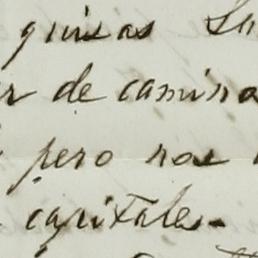 quisas Su
r de camina
pero nos
capitales.